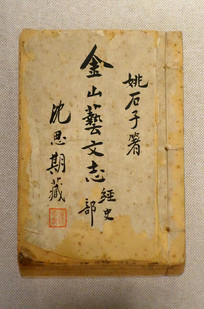 姚石子箸
金山藝文志
經史部
沈思期藏